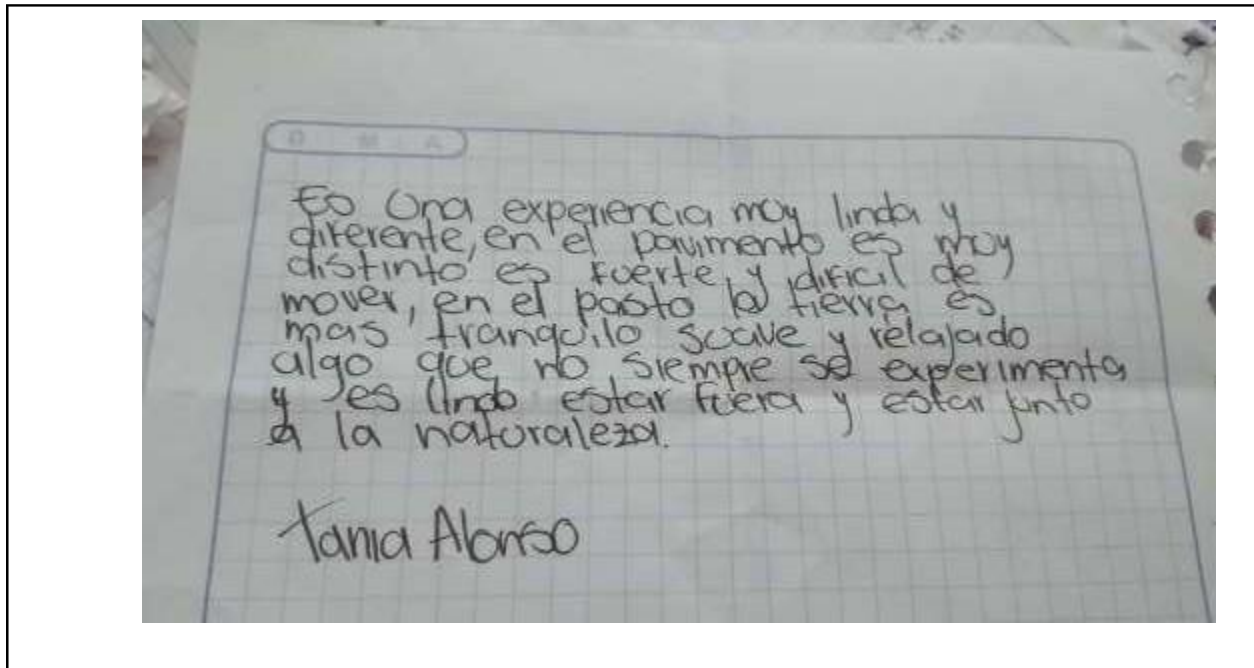 D M A
Es una experiencia muy linda y
diferente, en el pavimento es muy
distinto es fuerte y dificil de
mover, en el pasto la tierra es
mas tranquilo suave y relajado
algo que no siempre se experimenta
y es lindo estar fuera y estar junto
a la naturaleza.
Tania Alonso